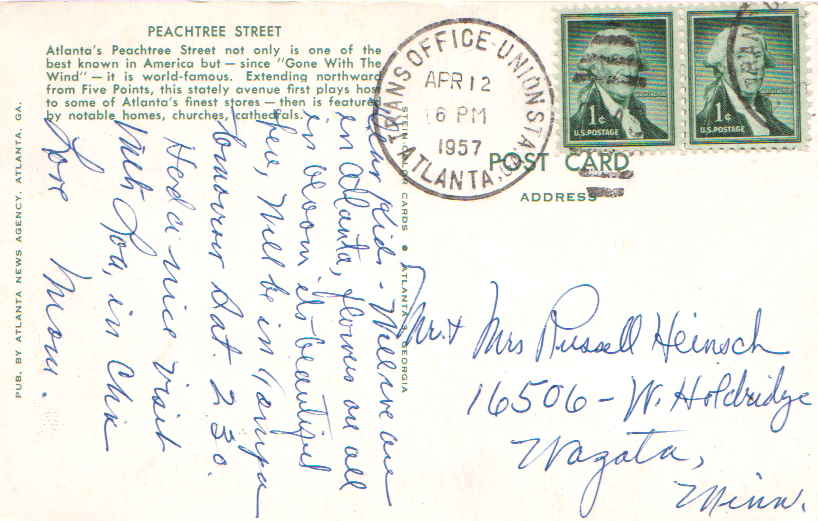 PEACHTREE STREET
Atlanta's Peachtree Street not only is one of the
best known in America but — since "Gone With The
Wind" — it is world-famous. Extending northward
from Five Points, this stately avenue first plays host
to some of Atlanta's finest stores — then is featured
by notable homes, churches, cathedrals.
PUB. BY ATLANTA NEWS AGENCY, ATLANTA, GA.
Dear Kids - Well we are
in Atlanta, flowers are all
in bloom its beautiful
here, Will be in Tampa
tomorrow Sat. 2 30.
Had a nice visit
with Loa, in Chi
Love Mom.
CARDS ● ATLANTA 3, GEORGIA
TRANS OFFICE-UNION STA.
APR 12
6 PM
1957
ATLANTA, GA.
1¢
U.S. POSTAGE
1¢
U.S. POSTAGE
POST CARD
ADDRESS
Mr. + Mrs Russell Heinsch
16506 - W. Holdridge
Wazata,
Minn.